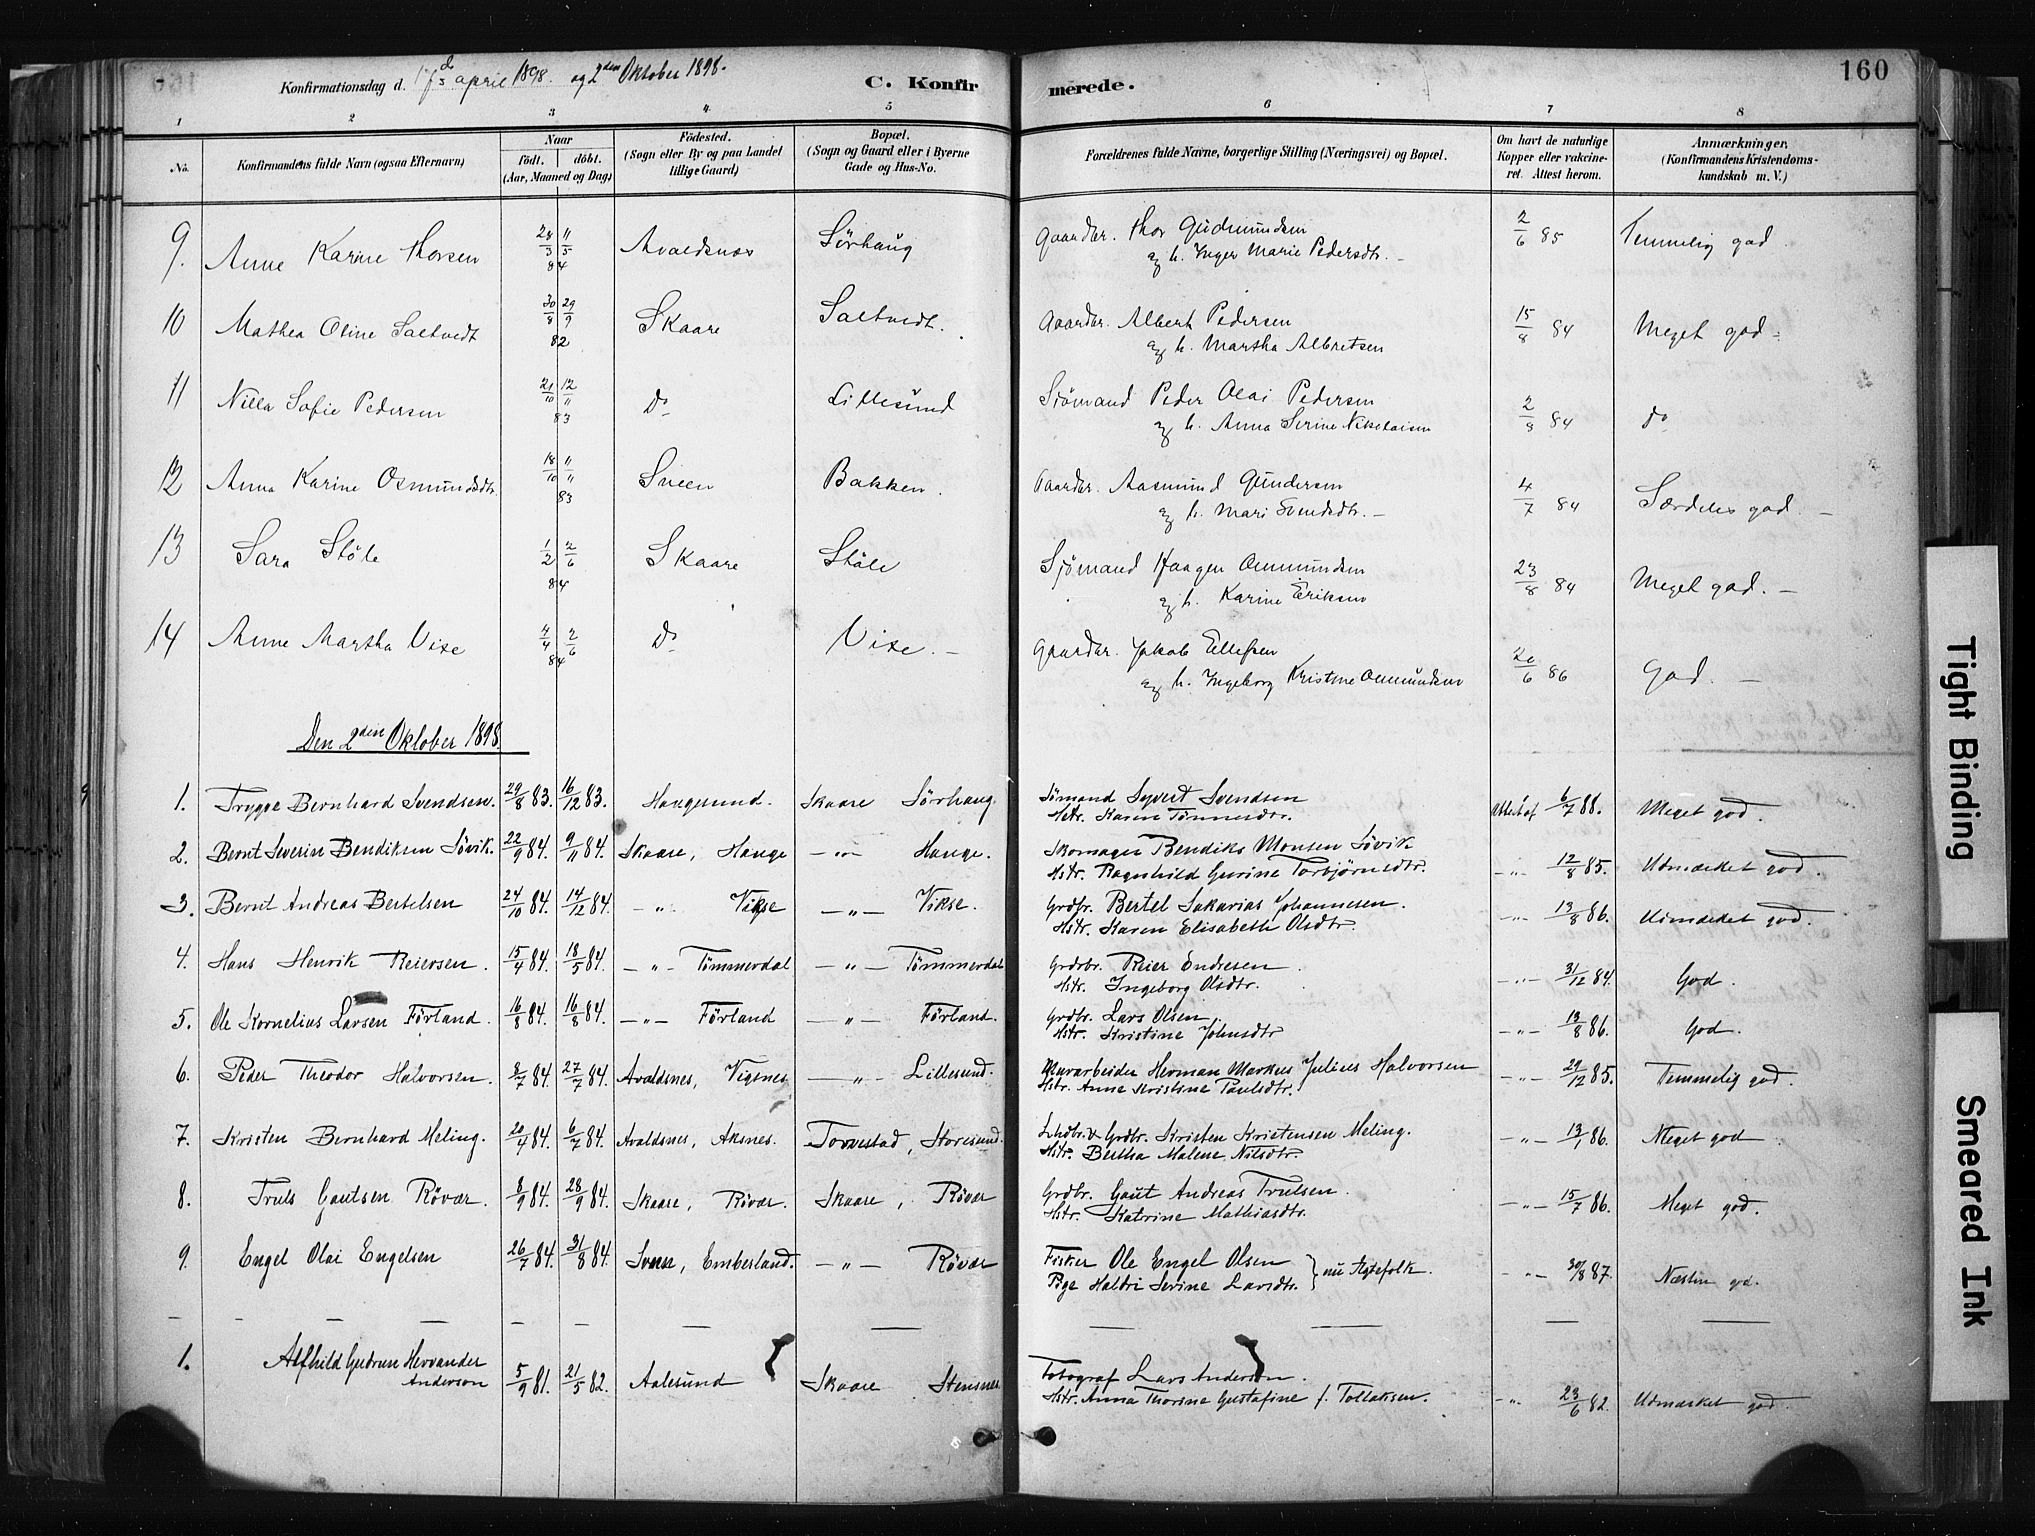 160
Konfirmationsdag d. 17d april 1898. og 2den Oktober 1898.
C. Konfirmerede.
1 2 3 4 5 6 7 8
No. Konfirmandens fulde Navn (ogsaa Efternavn) Naar födt. döbt. (Aar, Maaned og Dag) Födested. (Sogn eller By og paa Landet tillige Gaard) Bopæl. (Sogn og Gaard eller i Byerne Gade og Hus-No. Forældrenes fulde Navne, borgerlige Stilling (Næringsvei) og Bopæl. Om havt de naturlige Kopper eller vakcineret. Attest herom. Anmærkninger. (Konfirmandens Kristendomskundskab m. V.)
9. Anne Karine Thorsen 28/3 11/5 84 Avaldsnæs Sörhaug Gaardbr. Thor Gudmundsen 2/6 85 Temmelig god
og h. Inger Marie Pedersdtr. –
10 Mathea Oline Saltvedt 30/8 29/9 82 Skaare Saltvedt. Gaardbr. Albert Pedersen 15/8 84 Meget god –
og h. Martha Albretsen
11 Nilla Sofie Pedersen 21/10 12/11 83 Do Lillesund Sjömand Peder Olai Pedersen 84 do
og h. Anna Serine Nikolaisen
12 Anna Karine Osmundsdtr. 18/10 11/11 83 Sveen Bakken. Gaardbr. Aasmund Gundersen 4/7 84 Særdeles god. –
og h. Mari Svendsdtr. –
13 Sara Stöle 1/2 2/6 84 Skaare Stöle Sjömand Haagen Ommundsen 23/8 84 Meget god. –
og h. Karine Eriksen
14 Anne Martha Vixe 4/4 2/6 84 Do Vixe. – Gaardbr. Jakob Ellefsen 20/6 86 God. –
og h. Ingeborg Kristine Ommundsen
Den 2den Oktober 1898
1. Trygge Bernhard Svendsen. 29/8 83. 16/12 83. Haugesund. Skaare Sörhaug. Sömand Syvert Svendsen Attest af 6/7 88. Meget god.
Hstr. Karen Tönnesdtr.
2. Bernt Severin Bendiksen Sövik. 22/9 84. 9/11 84. Skaare, Hauge –"– Hauge. Skomager Bendiks Monsen Sövik –"– 12/8 85. Udmærket god.
Hstr. Ragnhild Gurine Torbjörnsdtr.
3. Bernt Andreas Bertelsen 24/10 84. 14/12 84. –"– Vikse –"– Vikse. Grdbr. Bertel Sakarias Johannesen. –"– 13/8 86. Udmærket god.
Hstr. Karen Elisabeth Olsdtr.
4. Hans Henrik Reiersen. 15/4 84. 18/5 84. –"– Tömmerdal –"– Tömmerdal Grdbr. Reier Endresen –"– 31/12 84. God.
Hstr. Ingeborg Olsdtr.
5. Ole Kornelius Larsen Förland. 16/8 84. 16/8 84. –"– Förland –"– Förland. Grdbr. Lars Olsen –"– 13/8 86. God.
Hstr. Kristine Johnsdtr
6. Peder Theodor Halvorsen. 8/7 84. 27/7 84. Avaldsnes, Vigsnes –"– Lillesund. Gruvarbeider Herman Markus Julius Halvorsen –"– 29/12 85. Temmelig god.
Hstr. Anna Kristine Paulsdtr.
7. Kristen Bernhard Meling. 20/4 84. 6/7 84. Avaldsnes, Aksnes. Torvestad, Storesund. & Grdbr. Kristen Kristensen Meling. –"– 13/1 86. Meget god
Hstr. Bertha Malene Nilsdtr.
8. Truls Gautsen Rövær. 8/9 84. 28/9 84. Skaare, Rövær. Skaare, Rövær Grdbr. Gaut Andreas Trulsen. –"– 15/7 86. Meget god.
Hstr. Katrine Mathiasdtr.
9. Engel Olai Engelsen 26/7 84. 31/8 84. Sveen, Emberland. –"– Rövær Fisker Ole Engel Olsen } nu Ægtefolk. –"– 30/8 87. Næsten gd.
Pige Haldri Serine Larsdtr.
1. Alfhild Gudrun Hervander Anderson 5/9 81. 21/5 82. Aalesund Skaare Stensnes Fotograf Lars Anderson. –"– 23/6 82. Udmærket god.
Hstr. Anna Thorine Gustafine f. Tollaksen.
Tight Binding
Smeared Ink